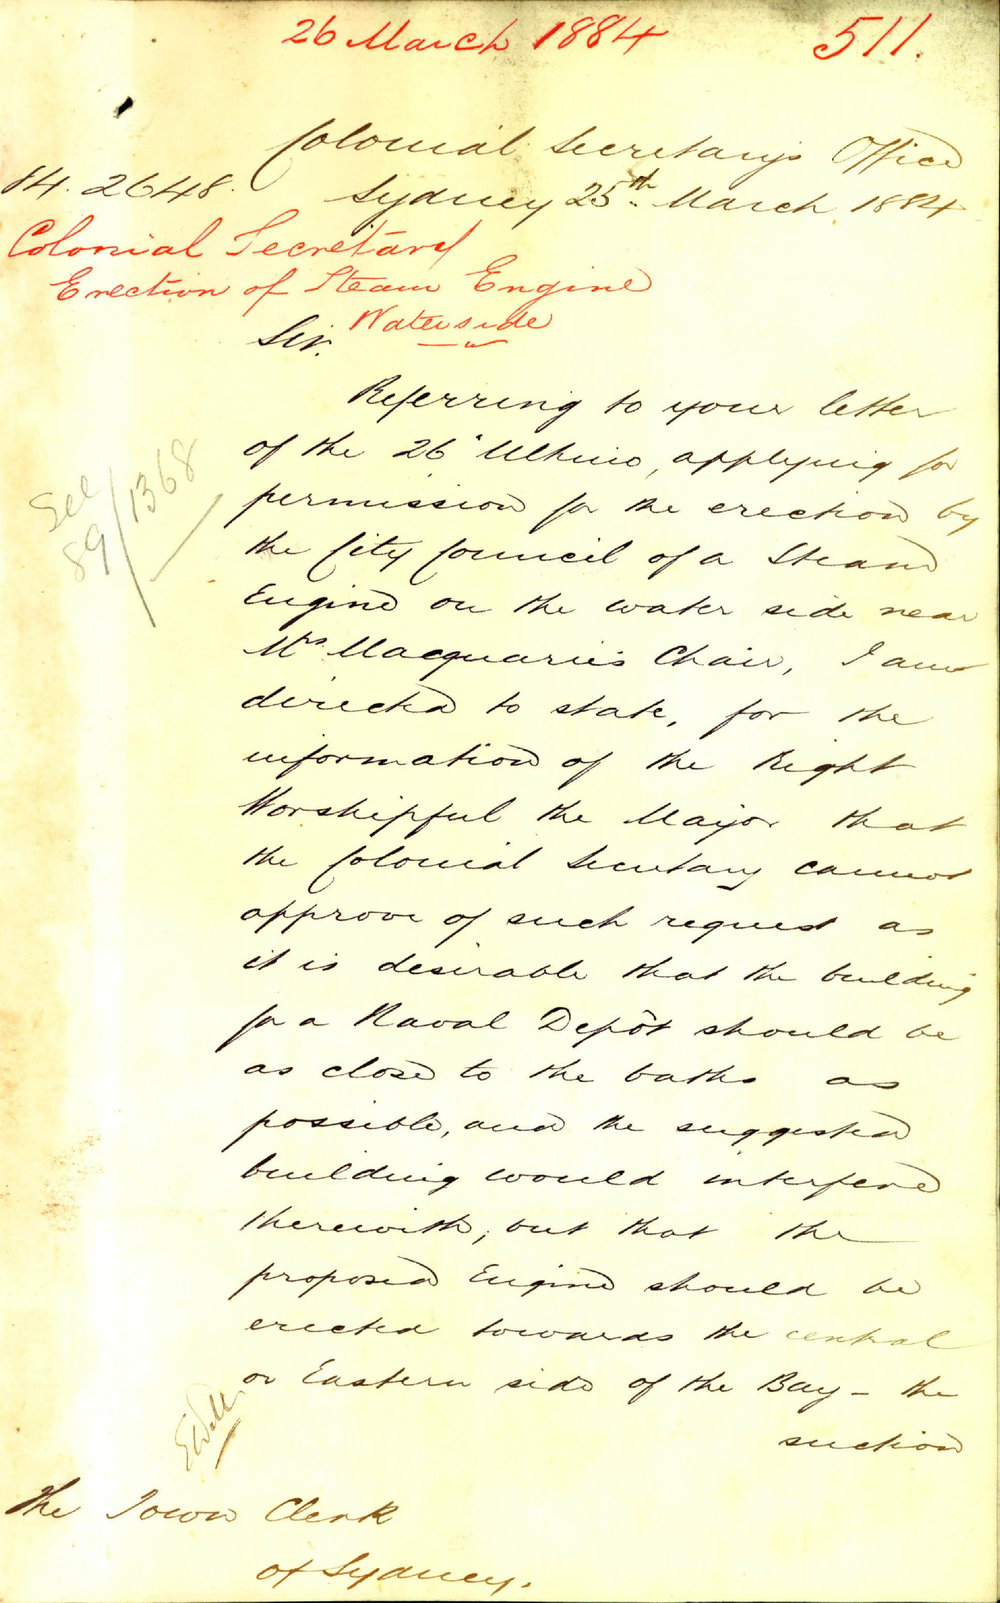 26 March 1884
511.
Colonial Secretary's Office
84. 2648.
Sydney 25th March 1884
Colonial Secretary
Erection of Steam Engine
Waterside
Sir.
Referring to your letter
of the 26" Ultimo, applying for
permission for the erection by
the City Council of a Steam
Engine on the water side near
Mrs Macquarie's Chair, I am
directed to state, for the
information of the Right
Worshipful the Mayor that
the Colonial Secretary cannot
approve of such request as
it is desirable that the building
for a Naval Depôt should be
as close to the baths as
possible, and the suggested
building would interfere
therewith; but that the
proposed Engine should be
erected towards the central
or Eastern side of the Bay - the
suction
See
89/1368
The Town Clerk
of Sydney.